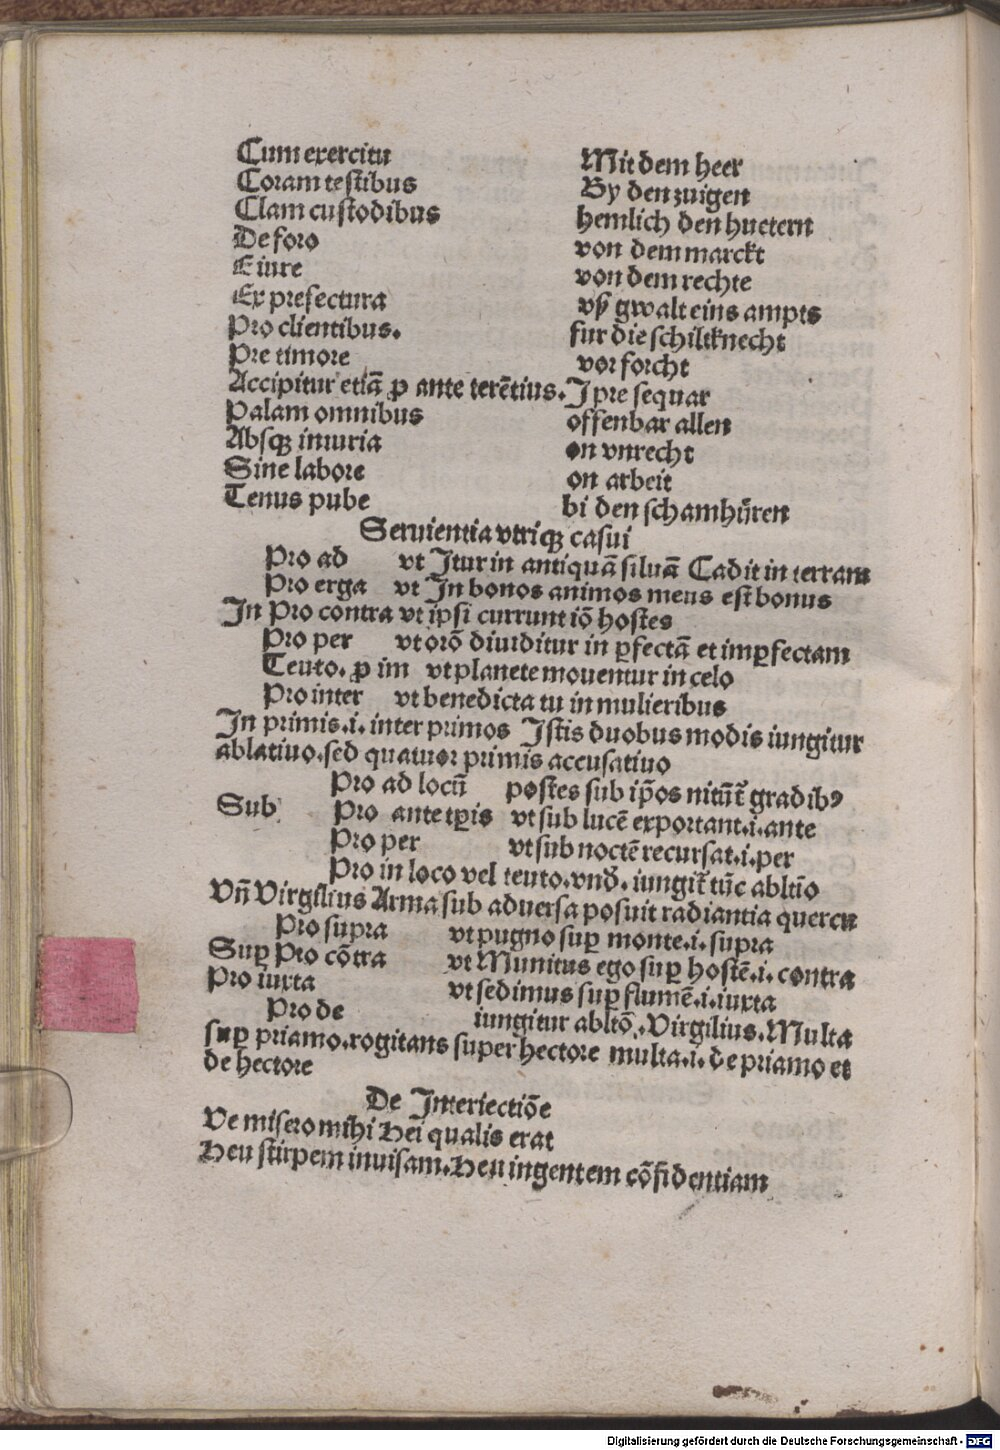 Cum exercitu Mit dem heer
Coram testibus By den zuigen
Clam custodibus hemlich den huetern
De foro von dem marckt
E iure von dem rechte
Ex prefectura vß gwalt eins ampts
Pro clientibus. fur die schiltknecht
Pre timore vor forcht
Accipitur etiã ꝓ ante terẽtius. I pre sequar
Palam omnibus offenbar allen
Absqꝫ iniuria on vnrecht
Sine labore on arbeit
Tenus pube bi den schamhüren
Seruientia vtriqꝫ casui
Pro ad vt Itur in antiquã siluã Cadit in terram
Pro erga vt In bonos animos meus est bonus
In Pro contra vt ipsi currunt iõ hostes
Pro per vt orõ diuiditur in ꝑfectã et imꝑfectam
Teuto. ꝓ im vt planete mouentur in celo
Pro inter vt benedicta tu in mulieribus
In primis .i. inter primos Istis duobus modis iungitur
ablatiuo. sed quatuor primis accusatiuo
Pro ad locũ postes sub ip̃os nitũt᷑ gradibꝰ
Sub Pro ante tꝑis vt sub lucẽ exportant .i. ante
Pro per vt sub noctẽ recursat .i. per
Pro in loco vel teuto. vnð. iungit᷑ tũc abltĩo
Vñ Virgilius Arma sub aduersa posuit radiantia quercu
Pro supra vt pugno suꝑ monte .i. supra
Suꝑ Pro cõtra vt Munitus ego suꝑ hostẽ .i. contra
Pro iuxta vt sedimus suꝑ flumẽ .i. iuxta
Pro de iungitur abltõ. Virgilius. Multa
suꝑ priamo. rogitans super hectore multa .i. de priamo et
de hectore
De Interiectiõe
Ve misero mihi Hei qualis erat
Heu stirpem inuisam. Heu ingentem cõfidentiam
Digitalisierung gefördert durch die Deutsche Forschungsgemeinschaft - DFG